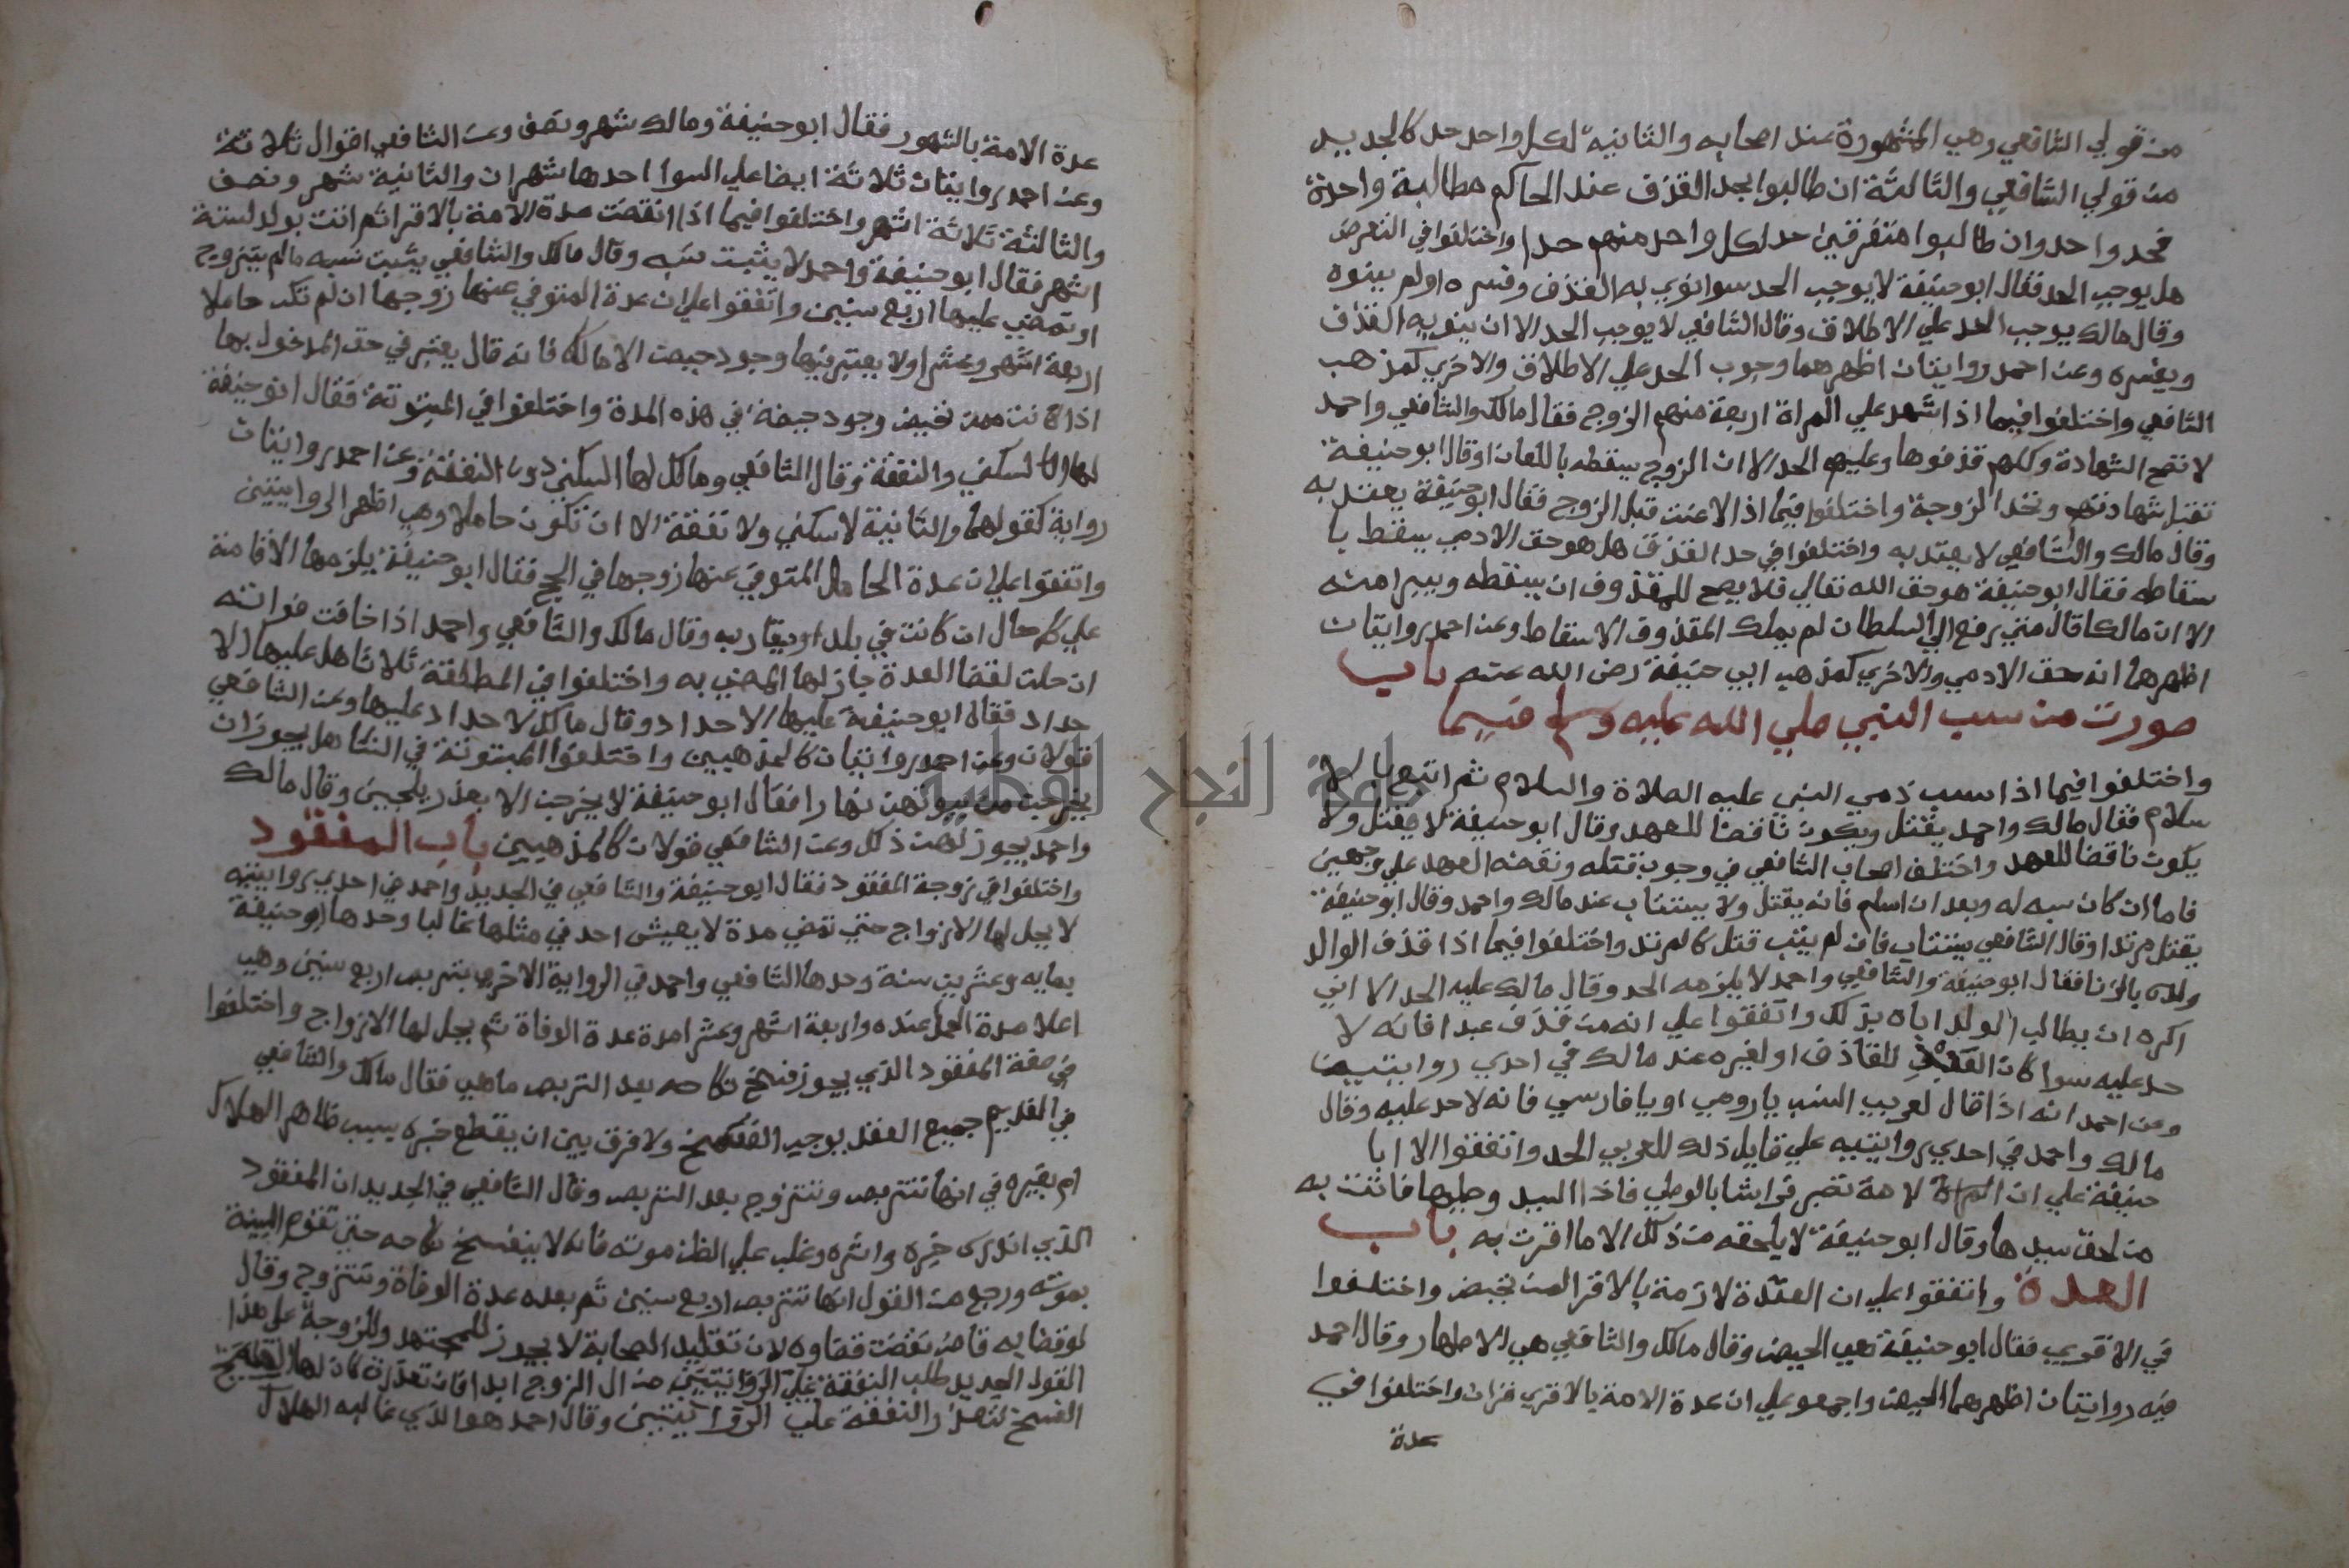 من قولي الشافعي وهي المشهورة عند اصحابه والثانيه لكل واحد حد كالجديد
من قولي الشافعي والثالثة ان طالبوا بحد القذف عند الحاكم مطالبة واحدة
فحد واحد وان طالبوا متفرقين حد لكل واحد منهم حدا واختلفوا في التعرض
هل يوجب الحد فقال ابو حنيفة لا يوجب الحد سوا نوي به القذف وفسره او لم ينوه
وقال مالك يوجب الحد علي الاطلاق وقال الشافعي لا يوجب الحد الا ان ينوي به القذف
ويفسره وعن احمد روايتان اظهرهما وجوب الحد علي الاطلاق والاخري كمذهب
الشافعي واختلفوا فيما اذا شهد علي المراة اربعة منهم الزوج فقال مالك والشافعي واحمد
لا تصح الشهادة وكلهم قذفوها وعليهم الحد الا ان الزوج يسقطه باللعان اوقال ابو حنيفة
تقبل شهادتهم وتحد الزوجة واختلفوا فيما اذا لاعنت قبل الزوج فقال ابو حنيفة يعتد به
وقال مالك والشافعي لا يعتد به واختلفوا في حد القذف هل هو حق الادمي يسقط با
سقاطه فقال ابو حنيفة هو حق الله تعالي فلا يصح للمقذوف ان يسقطه ويبرا منه
الا ان مالكا قال متي رفع الي السلطان لم يملك المقذوف الاسقاط وعن احمد روايتان
اظهرهما انه حق الادمي والاخري كمذهب ابي حنيفة رضي الله عنه باب
صورت من سب النبي صلي الله عليه وسلم فيما
واختلفوا فيما اذا سب ذمي النبي عليه الصلاة والسلام ثم اتبع بالا
سلام فقال مالك واحمد يقتل ويكون ناقضا للعهد وقال ابو حنيفة لا يقتل ولا
يكون ناقضا للعهد واختلف اصحاب الشافعي في وجوب قتله ونقضه العهد علي وجهين
فاما ان كان سبه له وبعد ان اسلم فانه يقتل ولا يستتاب عند مالك واحمد وقال ابو حنيفة
يقتل مرتدا وقال الشافعي يستتاب فان لم يتب قتل كالمرتد واختلفوا فيما اذا قذف الوالد
ولده بالزنا فقال ابو حنيفة والشافعي واحمد لا يلزمه الحد وقال مالك عليه الحد الا اني
اكره ان يطالب الولد اباه بذلك واتفقوا علي انه من قذف عبدا فانه لا
حد عليه سوا كان للقاذف او لغيره عند مالك في احدي روايتيه
وعن احمد انه اذا قال لعربي النسب يا رومي او يا فارسي فانه لا حد عليه وقال
مالك واحمد في احدي روايتيه علي قايل ذلك للعربي الحد واتفقوا الا ابا
حنيفة علي ان لامة تصير فراشا بالوطي فاذا السيد وطيها فاتت به
من لحق سيدها وقال ابو حنيفة لا يلحقه من ذلك الا ما اقرت به باب
العدة واتفقوا علي ان العدة لازمة بالاقرا لمن تحيض واختلفوا
في الاقري فقال ابو حنيفة هي الحيض وقال مالك والشافعي هي الاطهار وقال احمد
فيه روايتان اظهرهما الحيض واجمعو علي ان عدة الامة بالاقري قران واختلفوا في
عدة
عدة الامة بالشهور فقال ابو حنيفة ومالك شهر ونصف وعن الشافعي اقوال ثلاثة
وعن احمد روايتان ثلاثة ايضا علي السوا احدها شهران والثانية شهر ونصف
والثالثة ثلاثة اشهر واختلفوا فيما اذا انقضت عدة الامة بالاقرا ثم اتت بولد لستة
اشهر فقال ابو حنيفة واحمد لا يثبت نسبه وقال مالك والشافعي يثبت نسبه ما لم يتزوج
او تمضي عليها اربع سنين واتفقوا علي ان عدة المتوفي عنها زوجها ان لم تكن حاملا
اربعة اشهر وعشرا ولا يعتبر فيها وجود حيض الا مالك فانه قال يعتبر في حق المدخول بها
اذا كانت ممن تحيض وجود حيضة في هذه المدة واختلفوا في المبتوتة فقال ابو حنيفة
لها السكني والنفقة وقال الشافعي ومالك لها السكني دون النفقة وعن احمد روايتان
رواية كقولهما والثانية لا سكني ولا نفقة الا ان تكون حاملا وهي اظهر الروايتين
واتفقوا علي ان عدة الحامل المتوفي عنها زوجها في الحج فقال ابو حنيفة يلزمها الاقامة
علي كل حال ان كانت في بلد او يقاربه وقال مالك والشافعي واحمد اذا خافت فواته
ان حلت لقضا العدة جاز لها المضي به واختلفوا في المطلقة ثلاثا هل عليها الا
حداد فقال ابو حنيفة عليها الاحداد وقال مالك لا حداد عليها وعن الشافعي
قولان وعن احمد روايتان كالمذهبين واختلفوا المبتوتة في النسا هل يجوز ان
يخرجن من بيوتهن نهارا فقال ابو حنيفة لا يخرجن الا بعذر يلجين وقال مالك
واحمد يجوز لهن ذلك وعن الشافعي قولان كالمذهبين باب المفقود
واختلفوا في زوجة المفقود فقال ابو حنيفة والشافعي في الجديد واحمد في احدي روايتيه
لا يحل لها الازواج حتي تمضي مدة لا يعيش احد في مثلها غالبا وحدها ابو حنيفة
بمايه وعشرين سنة وحدها الشافعي واحمد في الرواية الاخري بتربص اربع سنين وهي
اعلا مدة الحمل عنده واربعة اشهر وعشرا مدة عدة الوفاة ثم يحل لها الازواج واختلفوا
في صفة المفقود الذي يجوز فسخ نكاحه بعد التربص ما هي فقال مالك والشافعي
في القديم جميع الفقد يوجب الفسخ ولا فرق بين ان يقطع خبره بسبب ظاهر الهلاك
ام بغيره في انها تتربص وتتزوج بعد التربص وقال الشافعي في الجديد ان المفقود
الذي اندرس خبره واثره وغلب علي الظن موته فانه لا ينفسخ نكاحه حتي تقوم البينة
بموته ورجع من القول انها تتربص اربع سنين ثم بعده عدة الوفاة وتتزوج وقال
لو قضا به قاض نقضت قضاوه لان تقليد الصحابة لا يجوز للمجتهد وللزوجة علي هذا
القول الجديد طلب النفقة من ال الزوج ابدا فان تعذرت كان لها
الفسخ لتعذر النفقة علي وقال احمد هو الذي غالبه الهلاك
جامعة النجاح الوطنية